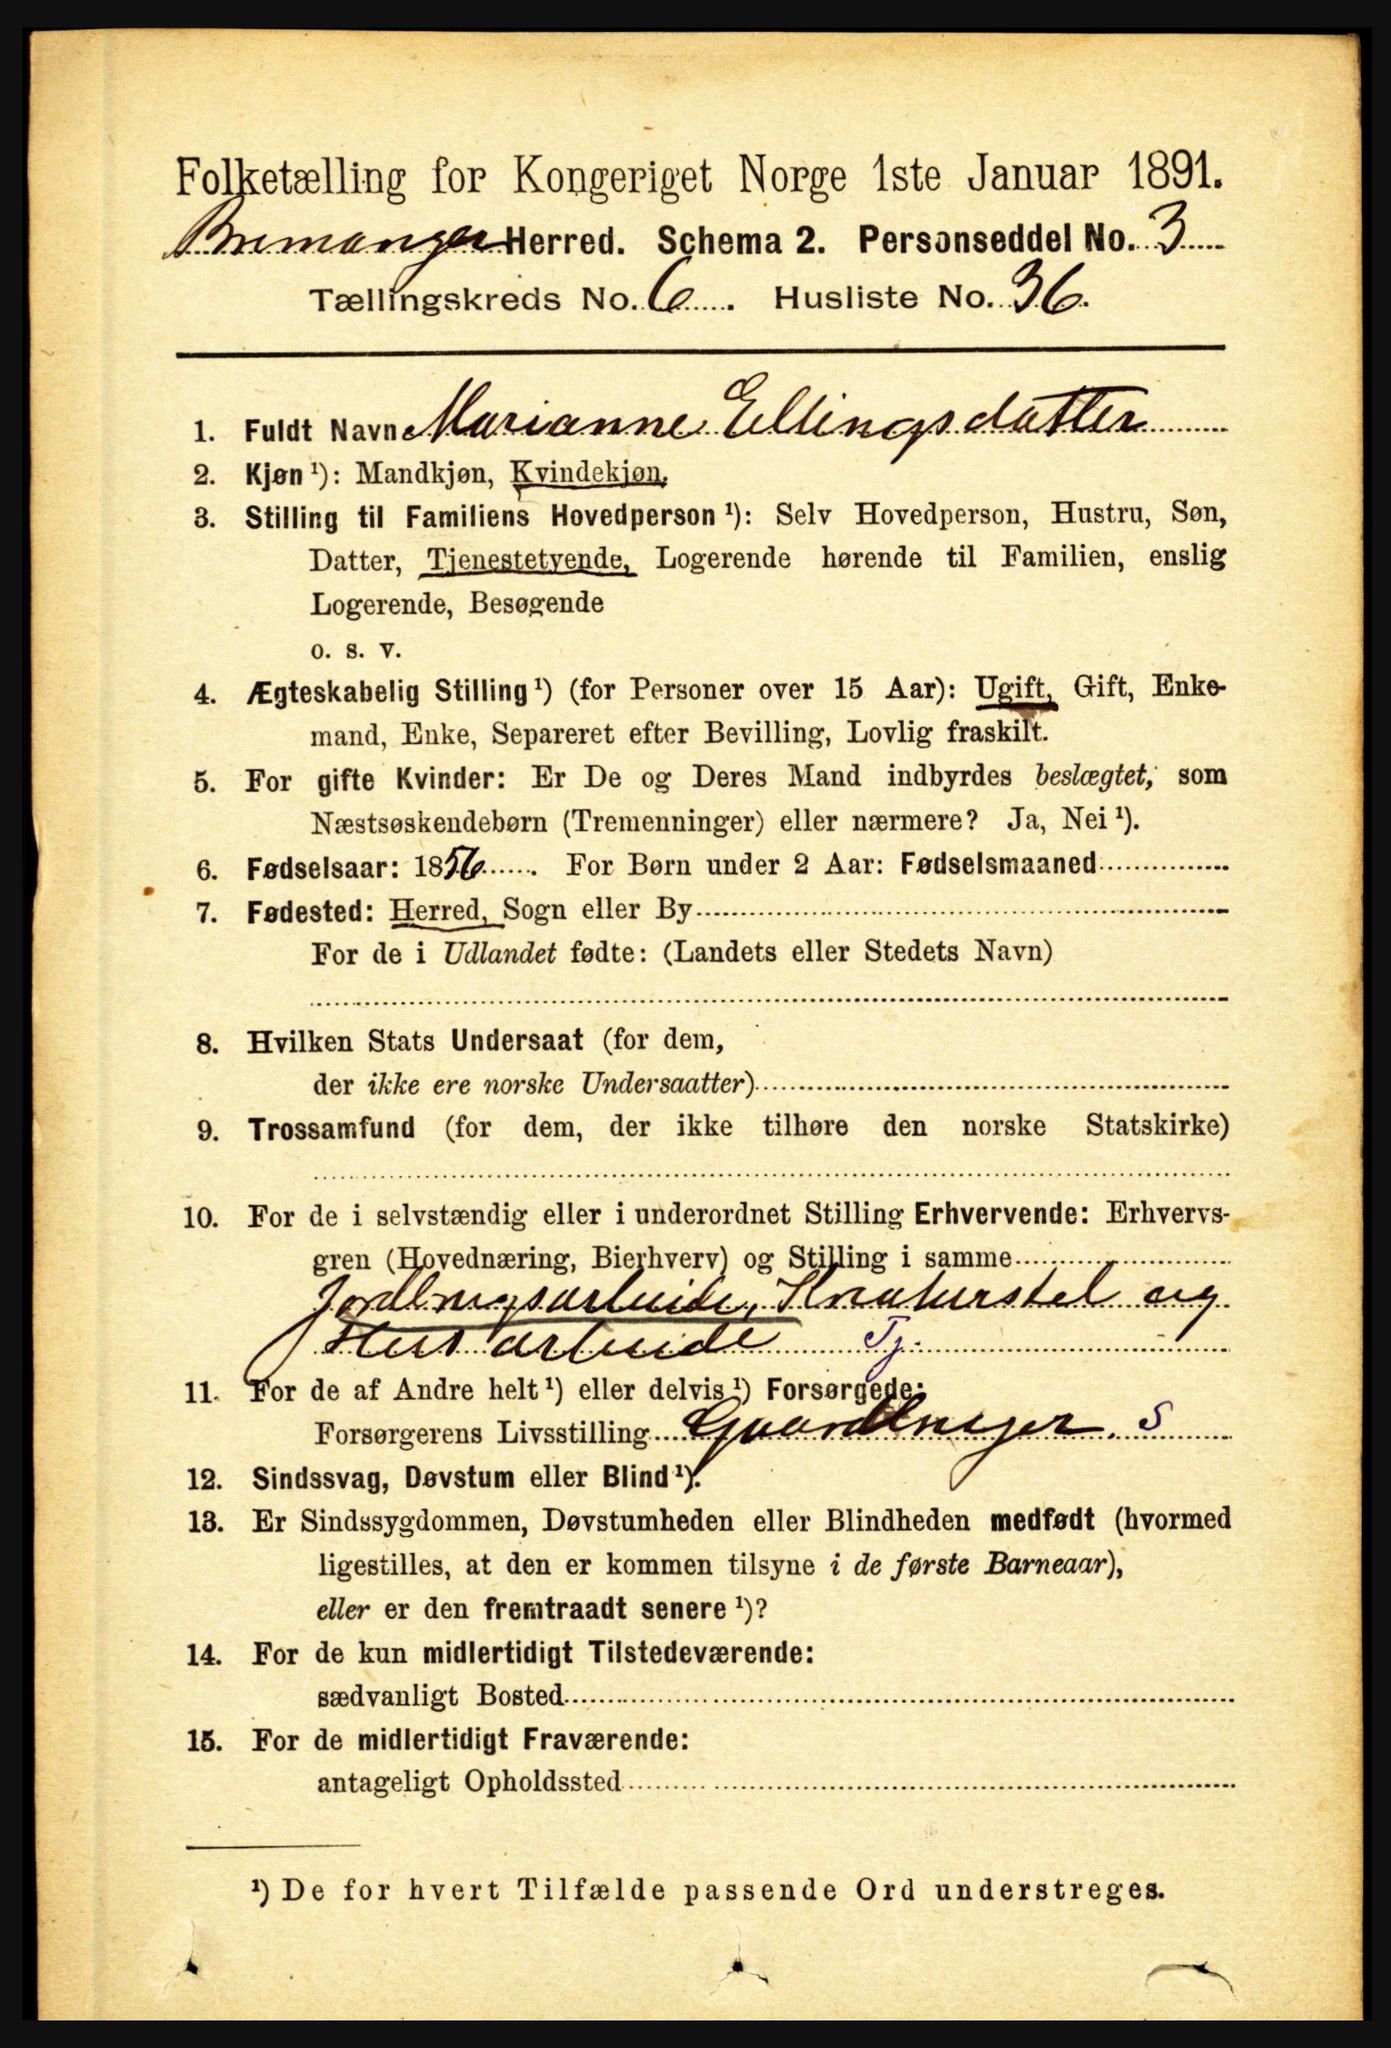 Folketælling for Kongeriget Norge 1ste Januar 1891.
Bremanger Herred. Schema 2. Personseddel No. 3
Tællingskreds No. 6. Husliste No. 36.
1. Fuldt Navn Marianne Ellingsdatter
2. Kjøn ¹): Mandkjøn, Kvindekjøn.
3. Stilling til Familiens Hovedperson ¹): Selv Hovedperson, Hustru, Søn,
Datter, Tjenestetyende, Logerende hørende til Familien, enslig
Logerende, Besøgende
o. s. v.
4. Ægteskabelig Stilling ¹) (for Personer over 15 Aar): Ugift, Gift, Enke-
mand, Enke, Separeret efter Bevilling, Lovlig fraskilt.
5. For gifte Kvinder: Er De og Deres Mand indbyrdes beslægtet, som
Næstsøskendebørn (Tremenninger) eller nærmere? Ja, Nei ¹).
6. Fødselsaar: 1856. For Børn under 2 Aar: Fødselsmaaned
7. Fødested: Herred, Sogn eller By
For de i Udlandet fødte: (Landets eller Stedets Navn)
8. Hvilken Stats Undersaat (for dem,
der ikke ere norske Undersaatter)
9. Trossamfund (for dem, der ikke tilhøre den norske Statskirke)
10. For de i selvstændig eller i underordnet Stilling Erhvervende: Erhvervs-
gren (Hovednæring, Bierhverv) og Stilling i samme
Jordbrugsarbeide, Kreaturstel og
Husarbeide Tj.
11. For de af Andre helt ¹) eller delvis ¹) Forsørgede:
Forsørgerens Livsstilling Gaardbruger. S
12. Sindssvag, Døvstum eller Blind ¹).
13. Er Sindssygdommen, Døvstumheden eller Blindheden medfødt (hvormed
ligestilles, at den er kommen tilsyne i de første Barneaar),
eller er den fremtraadt senere ¹)?
14. For de kun midlertidigt Tilstedeværende:
sædvanligt Bosted
15. For de midlertidigt Fraværende:
antageligt Opholdssted
¹) De for hvert Tilfælde passende Ord understreges.